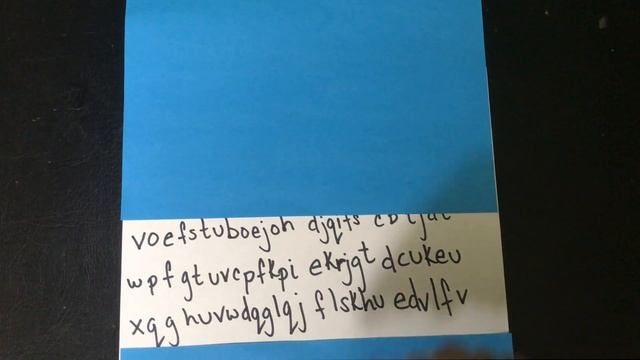 voefstuboejoh djqifs
wpfgtuvcpfkpi ekrjgt dcukeu
xqghuvwdqglqj flskhu edvlfv